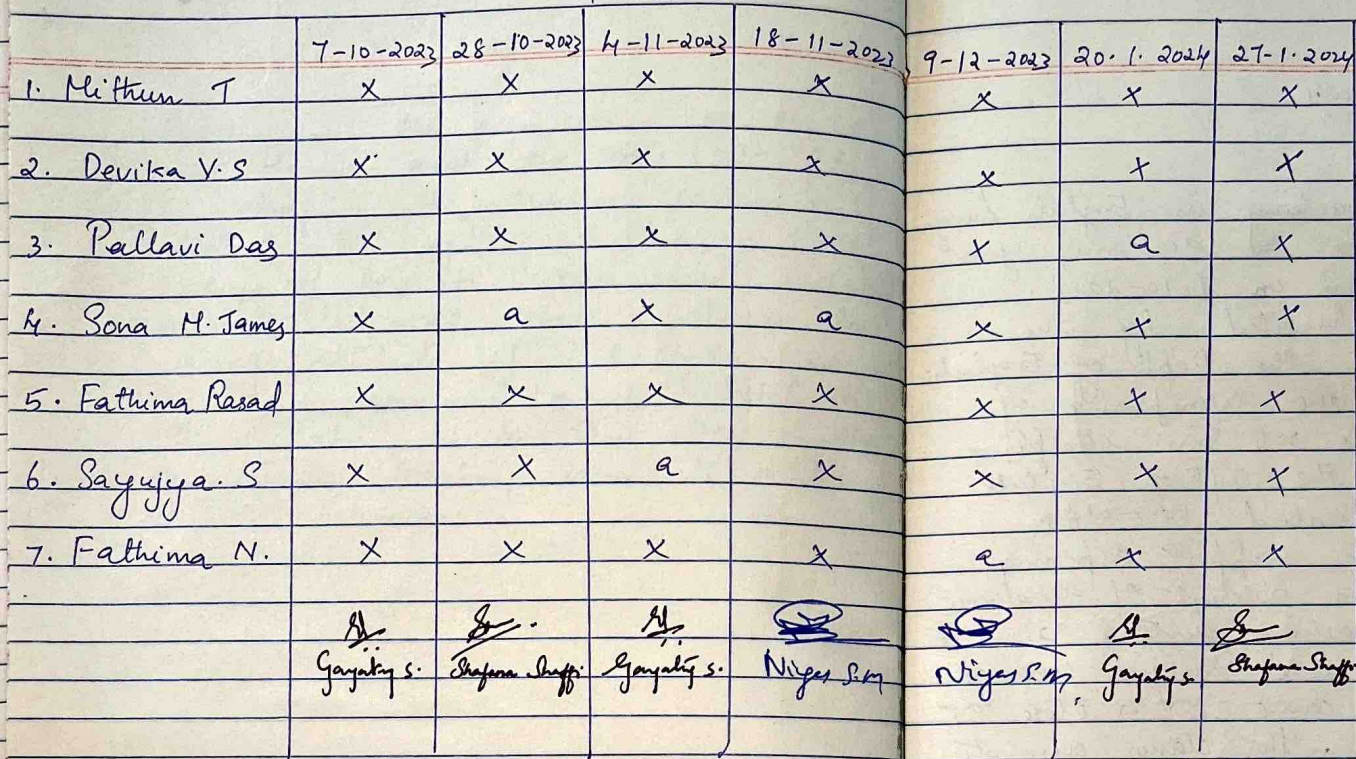 7-10-2023 28-10-2023 4-11-2023 18-11-2023 9-12-2023 20.1.2024 27-1.2024
1. Mithun T x x x x x x x
2. Devika V.S x x x x x x x
3. Pallavi Das x x x x x a x
4. Sona M. James x a x a x x x
5. Fathima Rasad x x x x x x x
6. Sayujya. S x x a x x x x
7. Fathima N. x x x x a x x
Gayatry s. Shafana Shaffi Gayatry s. Niyas S.M Niyas S.M Gayatry s Shafana Shaffi